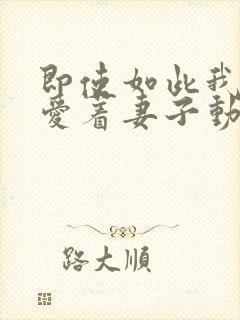 即使如此我
愛着妻子動
路大順